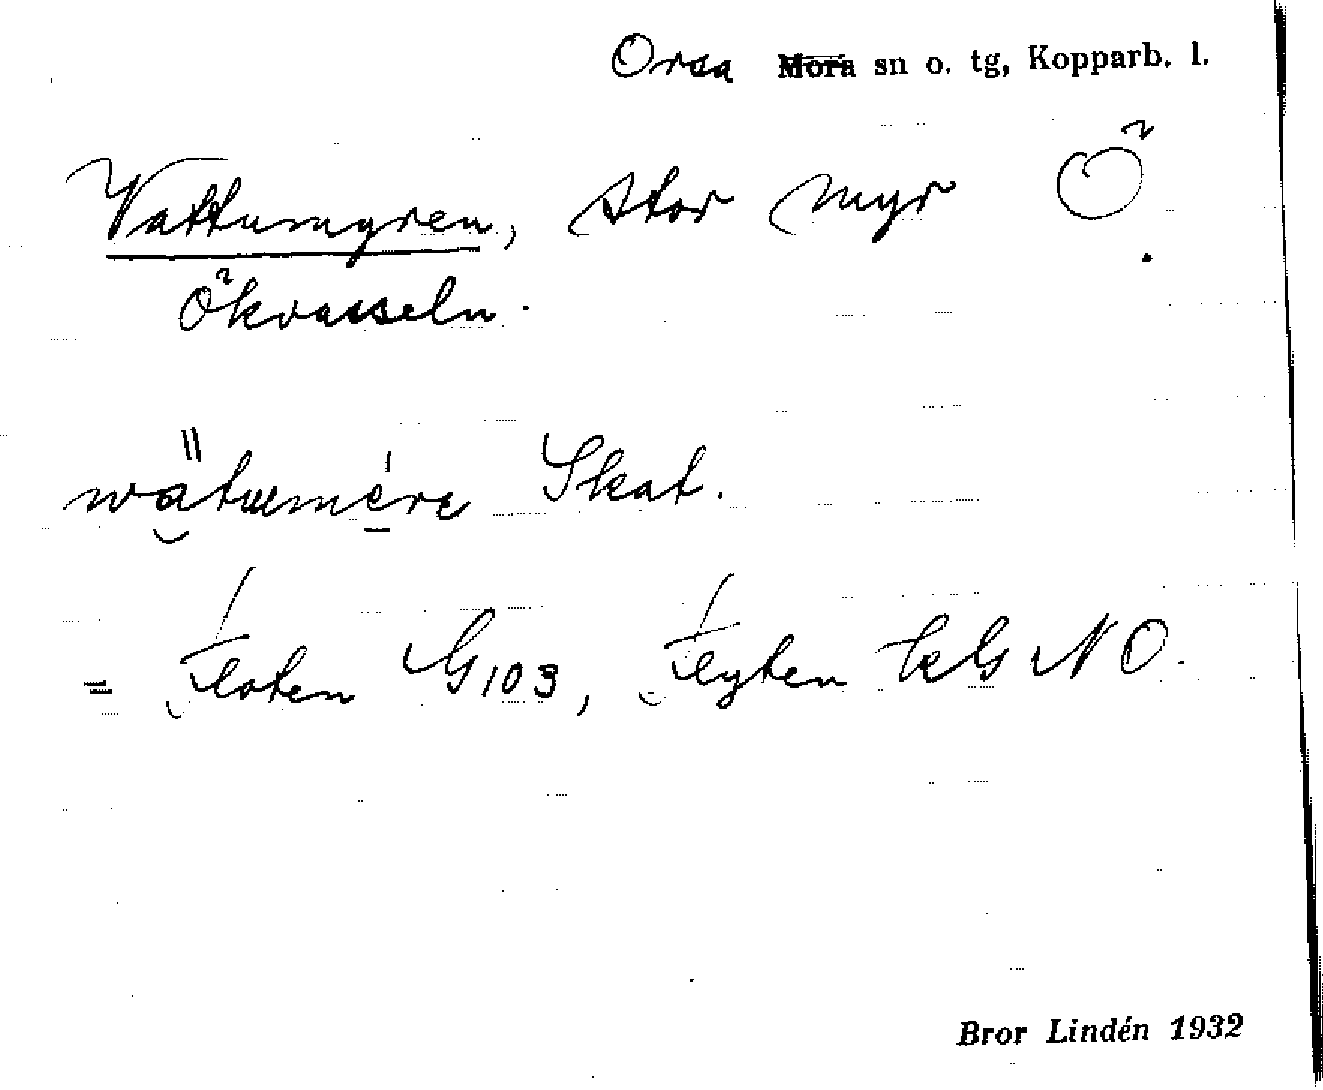 Orsa ~~Mora~~ sn o. tg, Kopparb. l.
Vattumyren, stor myr Ö
Ökvasseln.
wätumére Skat.
= Floten G103, Flyten kG NO.
Bror Lindén 1932